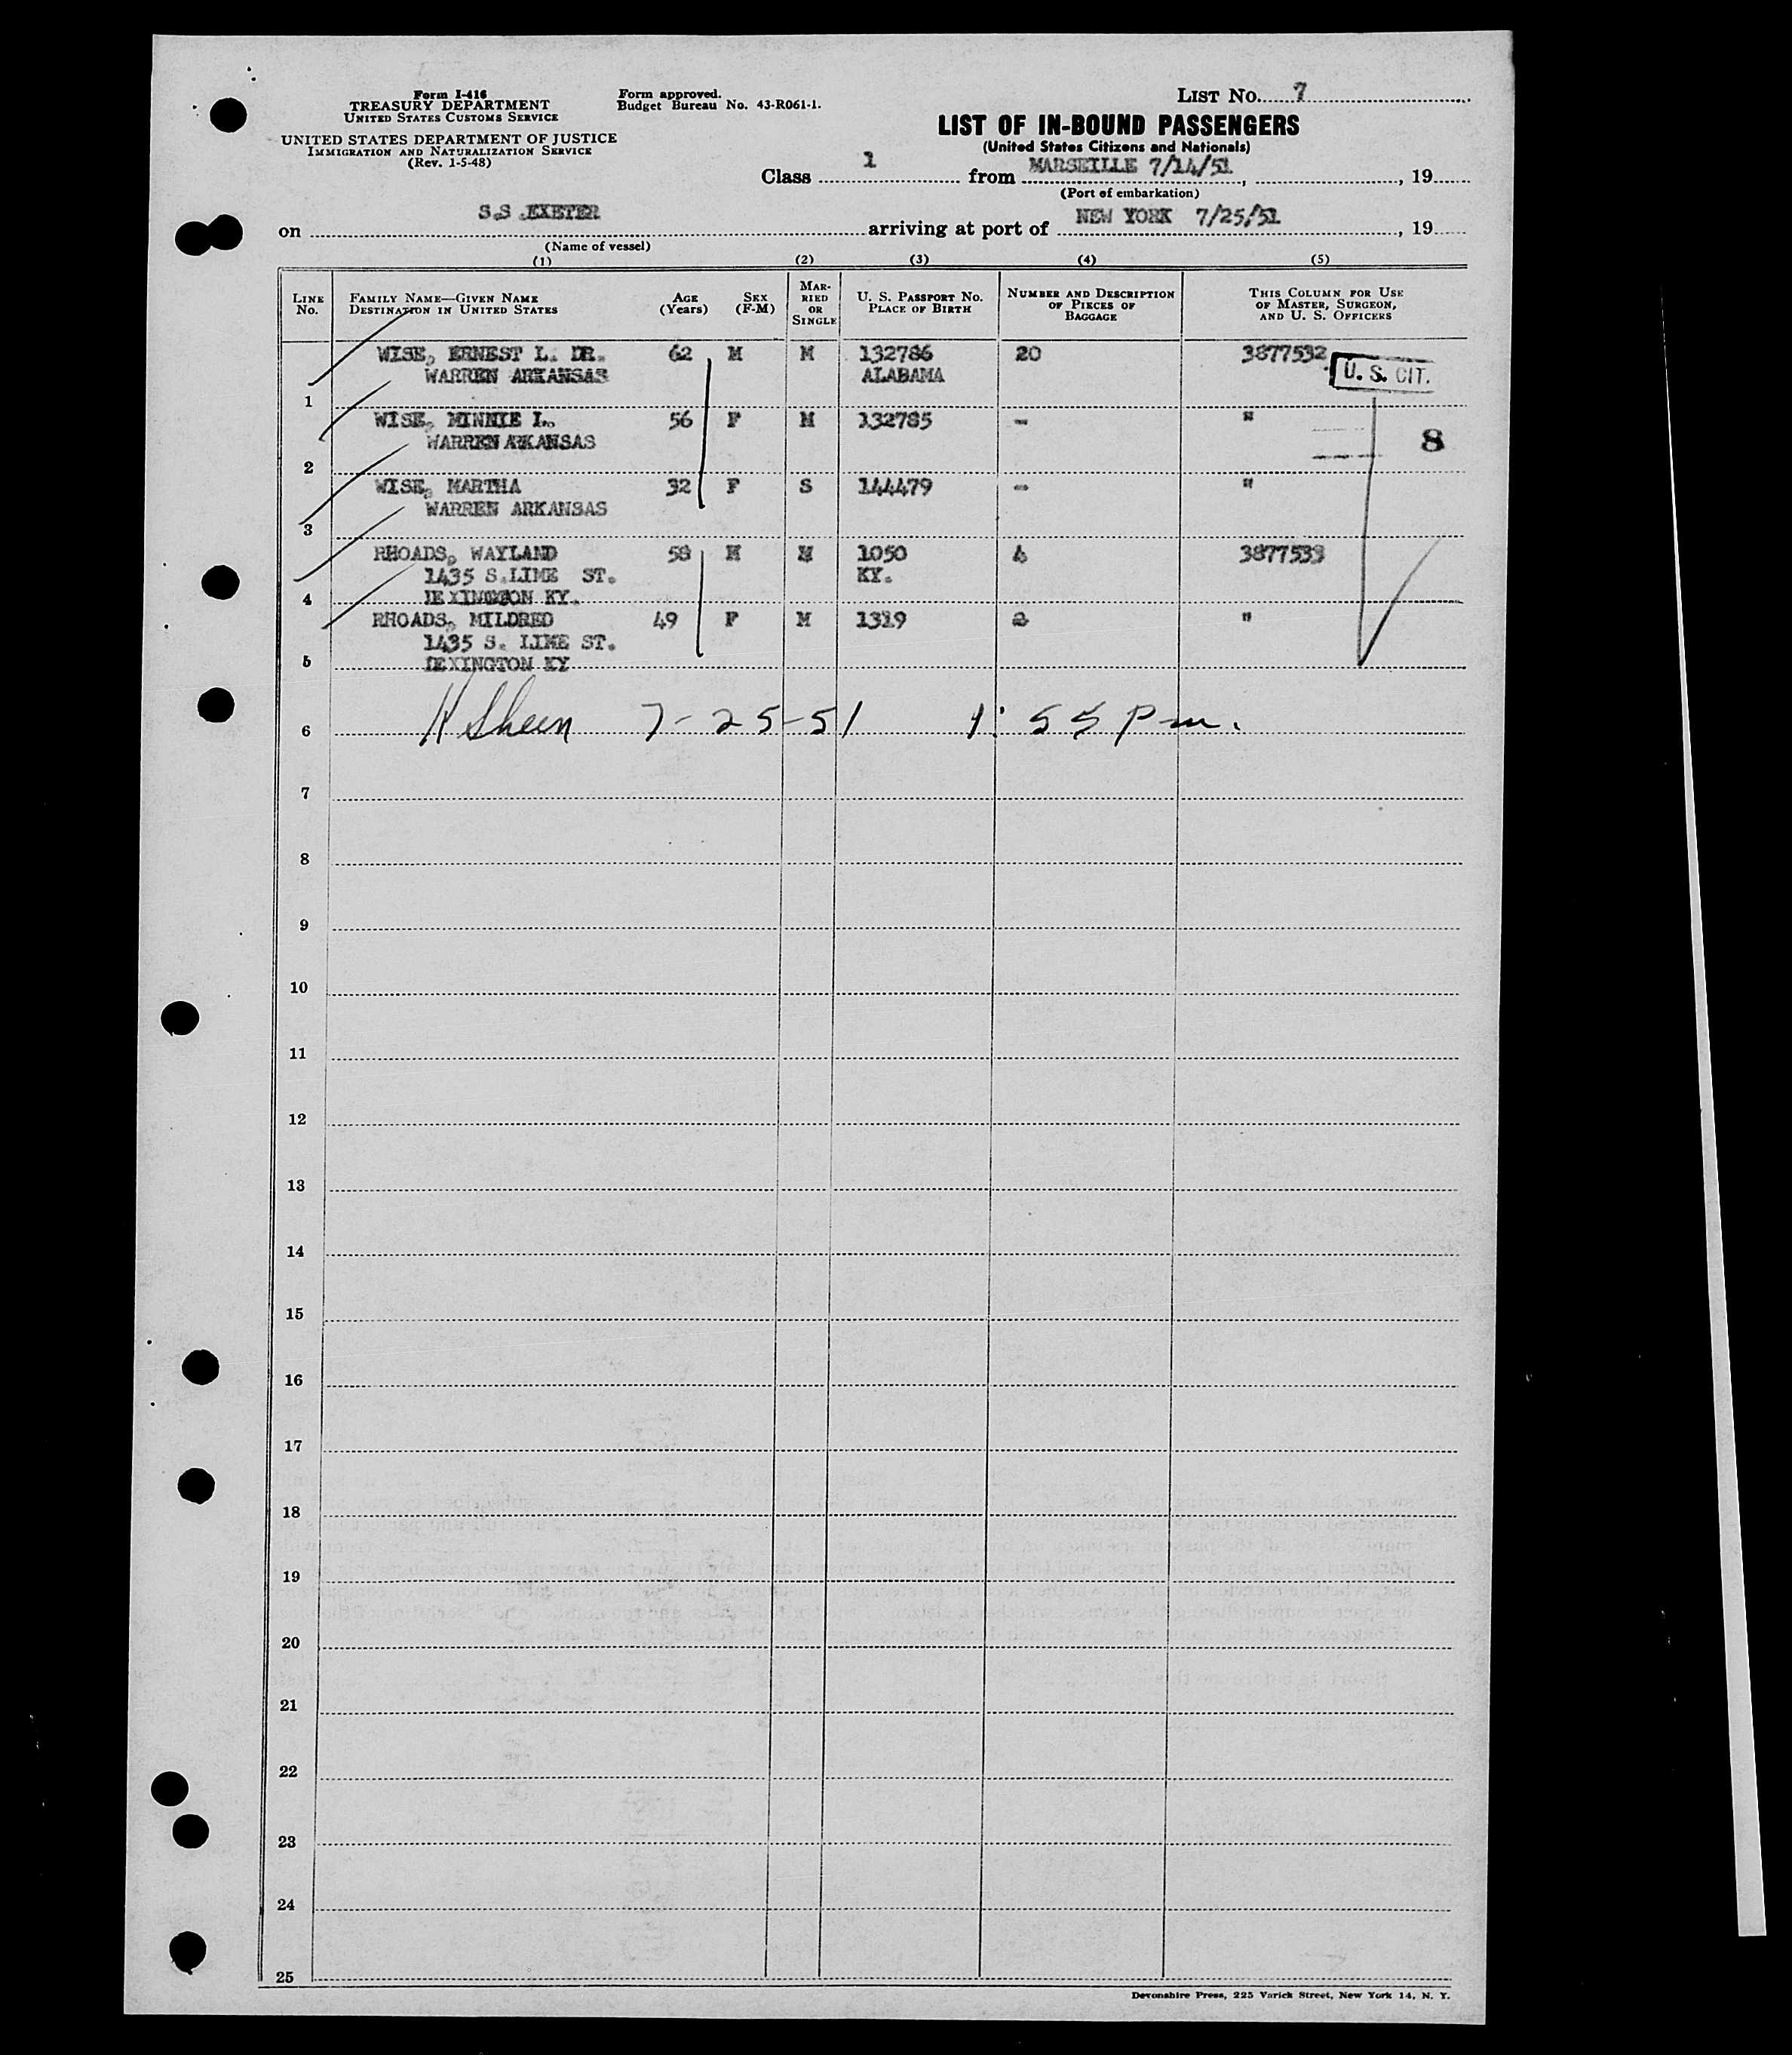 Form I-416
TREASURY DEPARTMENT
UNITED STATES CUSTOMS SERVICE
UNITED STATES DEPARTMENT OF JUSTICE
IMMIGRATION AND NATURALIZATION SERVICE
(Rev. 1-5-48)
Form approved.
Budget Bureau No. 43-R061-1.
LIST No. 7
LIST OF IN-BOUND PASSENGERS
(United States Citizens and Nationals)
Class 1 from MARSEILLE 7/14/51, , 19
(Port of embarkation)
on S.S .EXETER arriving at port of NEW YORK 7/25/51 , 19
(Name of vessel)
(1) (2) (3) (4) (5)
LINE No. FAMILY NAME—GIVEN NAME DESTINATION IN UNITED STATES AGE (Years) SEX (F-M) MARRIED OR SINGLE U. S. PASSPORT No. PLACE OF BIRTH NUMBER AND DESCRIPTION OF PIECES OF BAGGAGE THIS COLUMN FOR USE OF MASTER, SURGEON, AND U. S. OFFICERS
WISE, ERNEST L. DR. 62 M M 132786 20 3877532
WARREN ARKANSAS ALABAMA U. S. CIT.
1
WISE, MINNIE L. 56 F M 132785 - "
WARREN ARKANSAS 8
2
WISE, MARTHA 32 F S 144479 - "
WARREN ARKANSAS
3
RHOADS, WAYLAND 58 M M 1050 3877533
1435 S.LIME ST. KY.
4 LEXINGTON KY.
RHOADS, MILDRED 49 F M 1319 2 "
1435 S. LIME ST.
5 LEXINGTON KY
6 H Sheen 7-25-51 1:55 Pm.
7
8
9
10
11
12
13
14
15
16
17
18
19
20
21
22
23
24
25
Devonshire Press, 225 Varick Street, New York 14, N. Y.